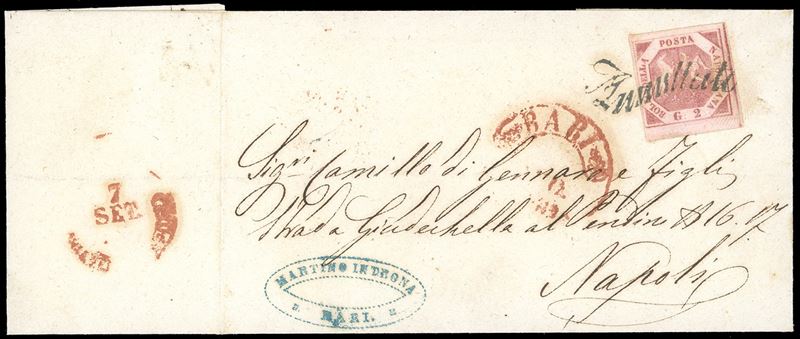 POSTA
G. 2
Annullato
BARI
Sig.ri Camillo di Gennaro e Figli
Strada Giudechella al Pendino N 16. 17
Napoli
7
SET.
MARTINO INTRONA
BARI.